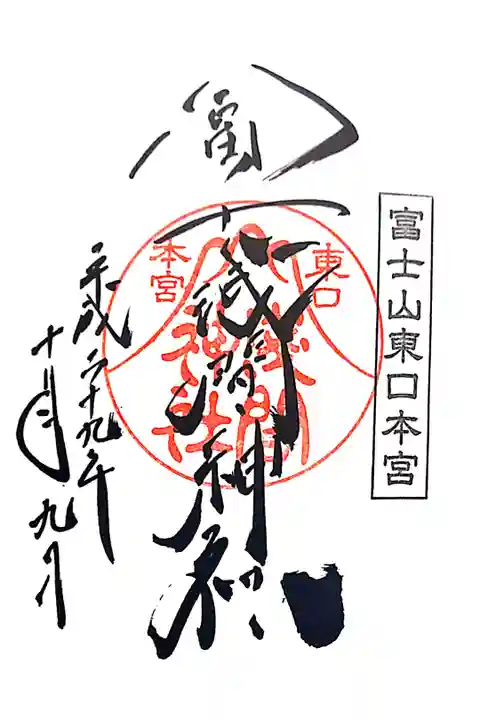 富士山東口本宮
冨士浅間神社
東口
本宮
淺間
神社
平成二十九年
十月九日